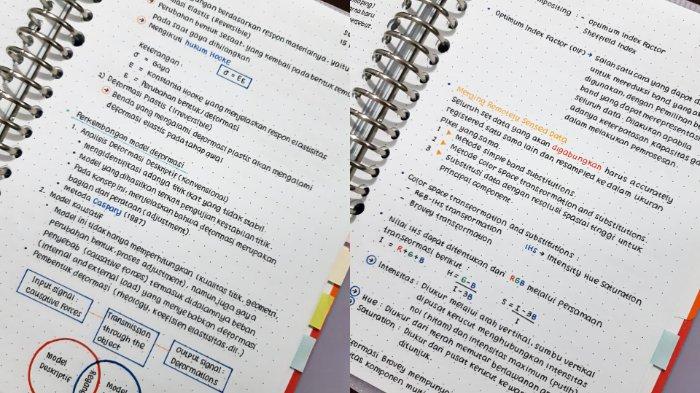 berdasarkan respon materialnya, yaitu
Elastis (Reversible)
Perubahan bentuk sesaat, yang kembali pada bentuk
Pada saat gaya dihilangkan
Mengikuti hukum HOOKE
Keterangan :
σ = Gaya
σ = EE
E = Konstanta HOOKE yang menjelaskan respon elastisitas
E = Perubahan bentuk / deformasi
2) Deformasi Plastis (Irreversible)
Benda yang mengalami deformasi plastis akan mengalami
deformasi elastis pada tahap awal
Perkembangan model deformasi
1. Analisis Deformasi Deskriptif (Konvensional)
• Mengidentifikasi adanya titik kat yang tidak stabil
• Model yang dihasilkan sering pengujian kestabilan titik.
• Pada konsep ini, menjelaskan bahwa deformasi merupakan
bagian dari perataan (adjustment)
• Metoda Caspary (1987)
2. Model Kausatif
Model ini tidak hanya memperhitungkan (Kualitas titik, geometri,
Perubahan bentuk, proses adjustment), namun juga gaya
penyebab (causative forces), termasuk didalamnya beban
(internal and external load) yang menyebabkan deformasi
Pembentuk deformasi (rheology, koefisien elastisitas, dll.)
Input signal :
causative forces
Transmission
through the
object
Output signal :
Deformations
Model
Deskriptif
Model
compositing :
- Optimum Index Factor
- Sheffield Index
• Optimum Index Factor (OIF) → Salah satu cara yang dapat
untuk mereduksi band yang akan
digunakan, dengan pemilihan b
band yang dapat merepresentasi
seluruh data. Dilakukan apabila
adanya keterbatasan kapasitas
dalam melakukan pemrosesan
• Merging Remotely Sensed Data
Seluruh set data yang akan digabungkan harus accurately
registered satu sama lain dan resampled ke dalam ukuran
Pixel yang sama.
1 Metode simple band substitutions.
2 Metode color space transformation and substitutions.
3 Substitusi data dengan resolusi spasial tinggi untuk
principal component.
• Color space transformation and substitutions :
- RGB-IHS transformation
IHS → Intensity Hue Saturation
- Brovey transformation
• Nilai IHS dapat ditentukan dari RGB melalui Persamaan
transformasi berikut :
I = R+G+B
H = G-B / I-3B
S = I-3B / I
Intensitas : Diukur melalui arah vertikal, sumbu vertikal
dipusat kerucut menghubungkan intensitas
nol (hitam) dan intensitas maksimum (putih)
Hue : Diukur dari merah memutar berlawanan
Saturation : Diukur dari pusat kerucut ke
ditunjuk.
Brovey
komponen